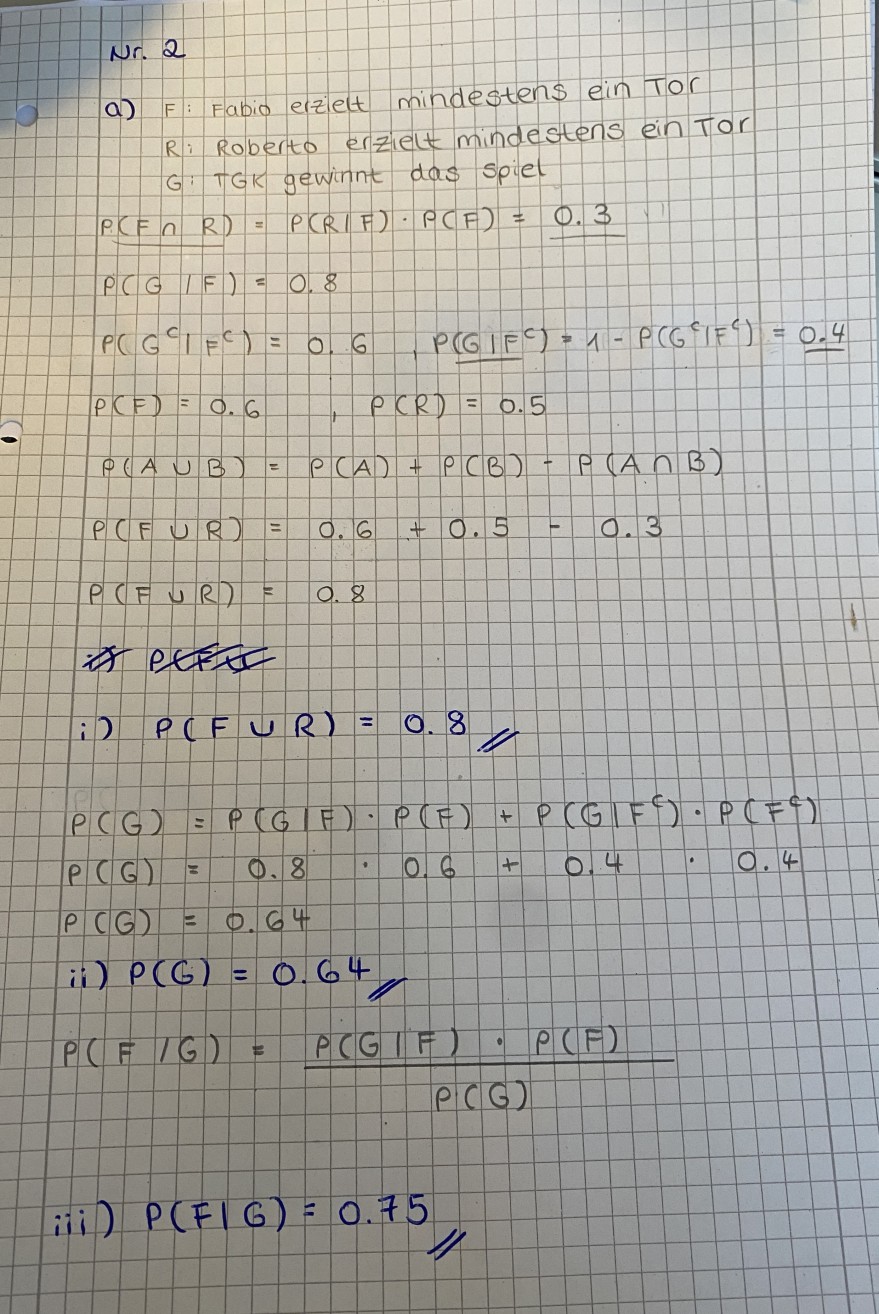 Nr. 2
a) F: Fabio erzielt mindestens ein Tor
R: Roberto erzielt mindestens ein Tor
G: TGK gewinnt das Spiel
P(F ∩ R) = P(R|F) · P(F) = 0.3
P(G | F) = 0.8
P(Gᶜ|Fᶜ) = 0.6 , P(G|Fᶜ) = 1 - P(Gᶜ|Fᶜ) = 0.4
P(F) = 0.6 , P(R) = 0.5
P(A ∪ B) = P(A) + P(B) - P(A ∩ B)
P(F ∪ R) = 0.6 + 0.5 - 0.3
P(F ∪ R) = 0.8
i) P(F ∪ R) = 0.8
P(G) = P(G|F) · P(F) + P(G|Fᶜ) · P(Fᶜ)
P(G) = 0.8 · 0.6 + 0.4 · 0.4
P(G) = 0.64
ii) P(G) = 0.64
P(F/G) = P(G|F) · P(F)
P(G)
iii) P(F|G) = 0.75